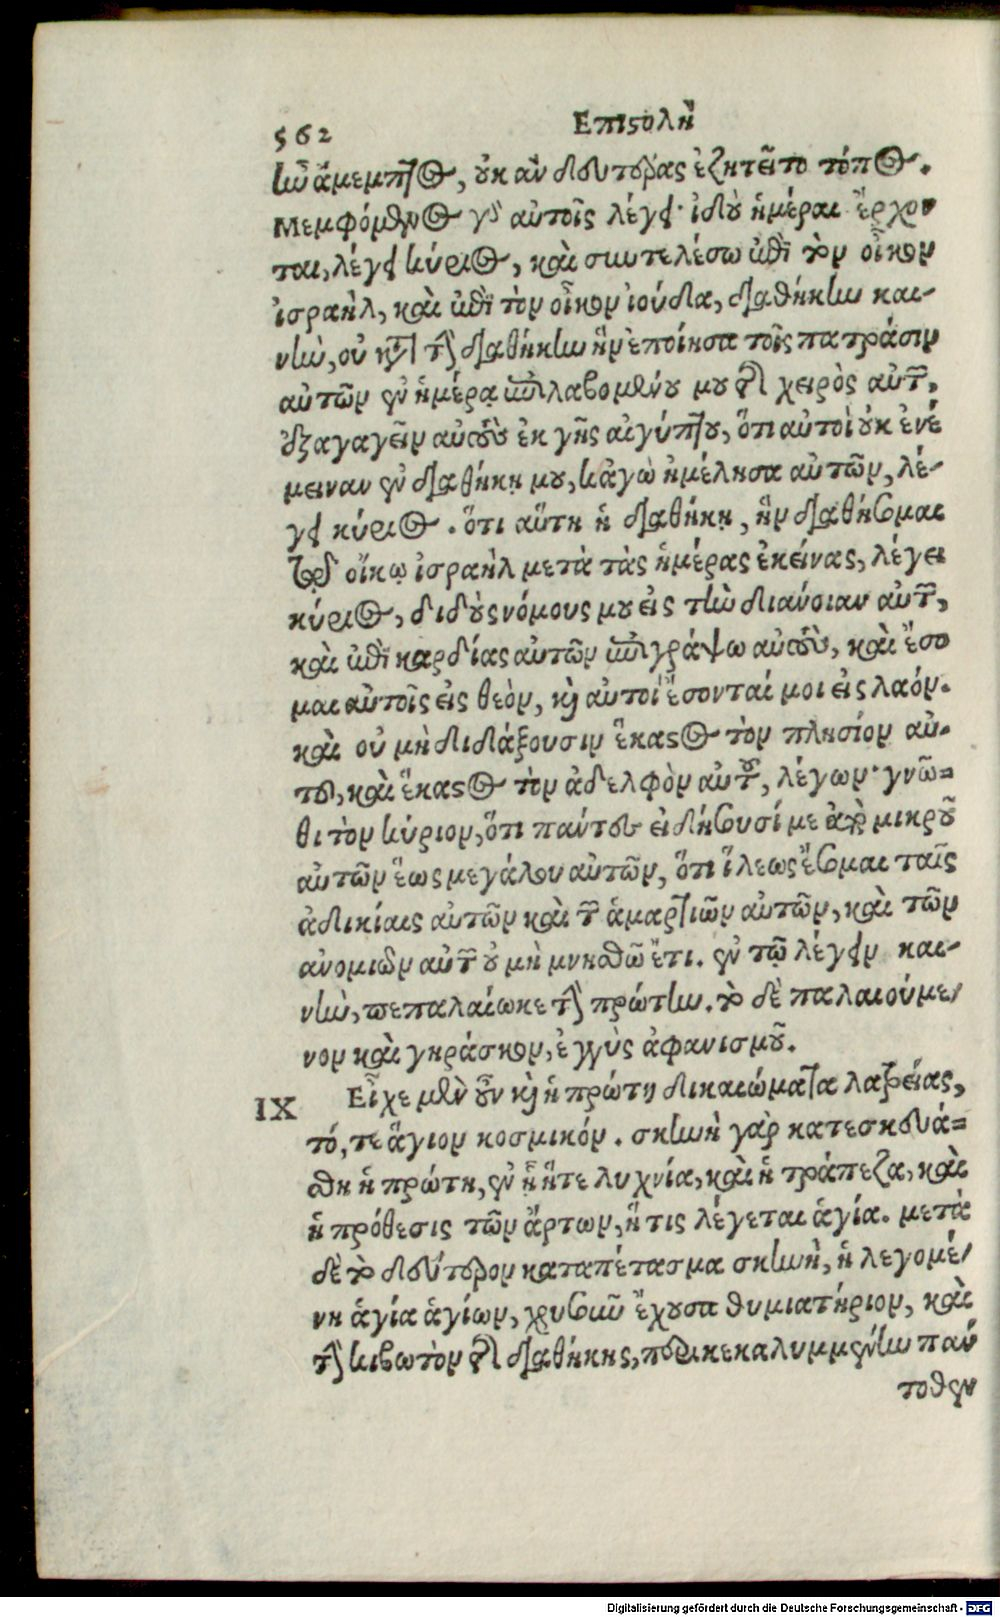 562
Επιστολὴ
ἦν ἄμεμπτος, οὐκ ἂν δευτέρας ἐζητεῖτο τόπος.
Μεμφόμενος γὰρ αὐτοῖς λέγει· ἰδοὺ ἡμέραι ἔρχον
ται, λέγει κύριος, καὶ συντελέσω ἐπὶ τὸν οἶκον
ἰσραὴλ, καὶ ἐπὶ τὸν οἶκον ἰούδα, διαθήκην και-
νὴν, οὐ κατὰ τὴν διαθήκην ἣν ἐποίησα τοῖς πατράσιν
αὐτῶν ἐν ἡμέρᾳ ἐπιλαβομένου μου τῆς χειρὸς αὐτῶν,
ἐξαγαγεῖν αὐτοὺς ἐκ γῆς αἰγύπτου, ὅτι αὐτοὶ οὐκ ἐνέ
μειναν ἐν διαθήκῃ μου, κἀγὼ ἠμέλησα αὐτῶν, λέ-
γει κύριος. ὅτι αὕτη ἡ διαθήκη, ἣν διαθήσομαι
τῷ οἴκῳ ἰσραὴλ μετὰ τὰς ἡμέρας ἐκείνας, λέγει
κύριος, διδοὺς νόμους μου εἰς τὴν διάνοιαν αὐτῶν,
καὶ ἐπὶ καρδίας αὐτῶν ἐπιγράψω αὐτοὺς, καὶ ἔσο
μαι αὐτοῖς εἰς θεὸν, καὶ αὐτοὶ ἔσονταί μοι εἰς λαόν.
καὶ οὐ μὴ διδάξουσιν ἕκαστος τὸν πλησίον αὐ-
τοῦ, καὶ ἕκαστος τὸν ἀδελφὸν αὐτοῦ, λέγων· γνῶ=
θι τὸν κύριον, ὅτι πάντες εἰδήσουσί με ἀπὸ μικροῦ
αὐτῶν ἕως μεγάλου αὐτῶν, ὅτι ἵλεως ἔσομαι ταῖς
ἀδικίαις αὐτῶν καὶ τῶν ἁμαρτιῶν αὐτῶν, καὶ τῶν
ἀνομιῶν αὐτῶν οὐ μὴ μνησθῶ ἔτι. ἐν τῷ λέγειν και-
νὴν, πεπαλαίωκε τὴν πρώτην. τὸ δὲ παλαιούμε/
νον καὶ γηράσκον, ἐγγὺς ἀφανισμοῦ.
IX Εἶχε μὲν οὖν καὶ ἡ πρώτη δικαιώματα λατρείας,
τό, τε ἅγιον κοσμικόν. σκηνὴ γὰρ κατεσκευά=
σθη ἡ πρώτη, ἐν ᾗ ἥτε λυχνία, καὶ ἡ τράπεζα, καὶ
ἡ πρόθεσις τῶν ἄρτων, ἥτις λέγεται ἁγία. μετὰ
δὲ τὸ δεύτερον καταπέτασμα σκηνὴ, ἡ λεγομέ/
νη ἁγία ἁγίων, χρυσοῦν ἔχουσα θυμιατήριον, καὶ
τὴν κιβωτὸν τῆς διαθήκης, περικεκαλυμμένην πάν
τοθεν
Digitalisierung gefördert durch die Deutsche Forschungsgemeinschaft - DFG